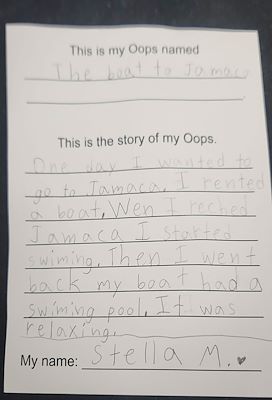 This is my Oops named
The boat to Jamaca
This is the story of my Oops.
One day I wanted to
go to Jamaca. I rented
a boat. Wen I reched
Jamaca I started
swiming. Then I went
back my boat had a
swiming pool. It was
relaxing.
My name: Stella M.